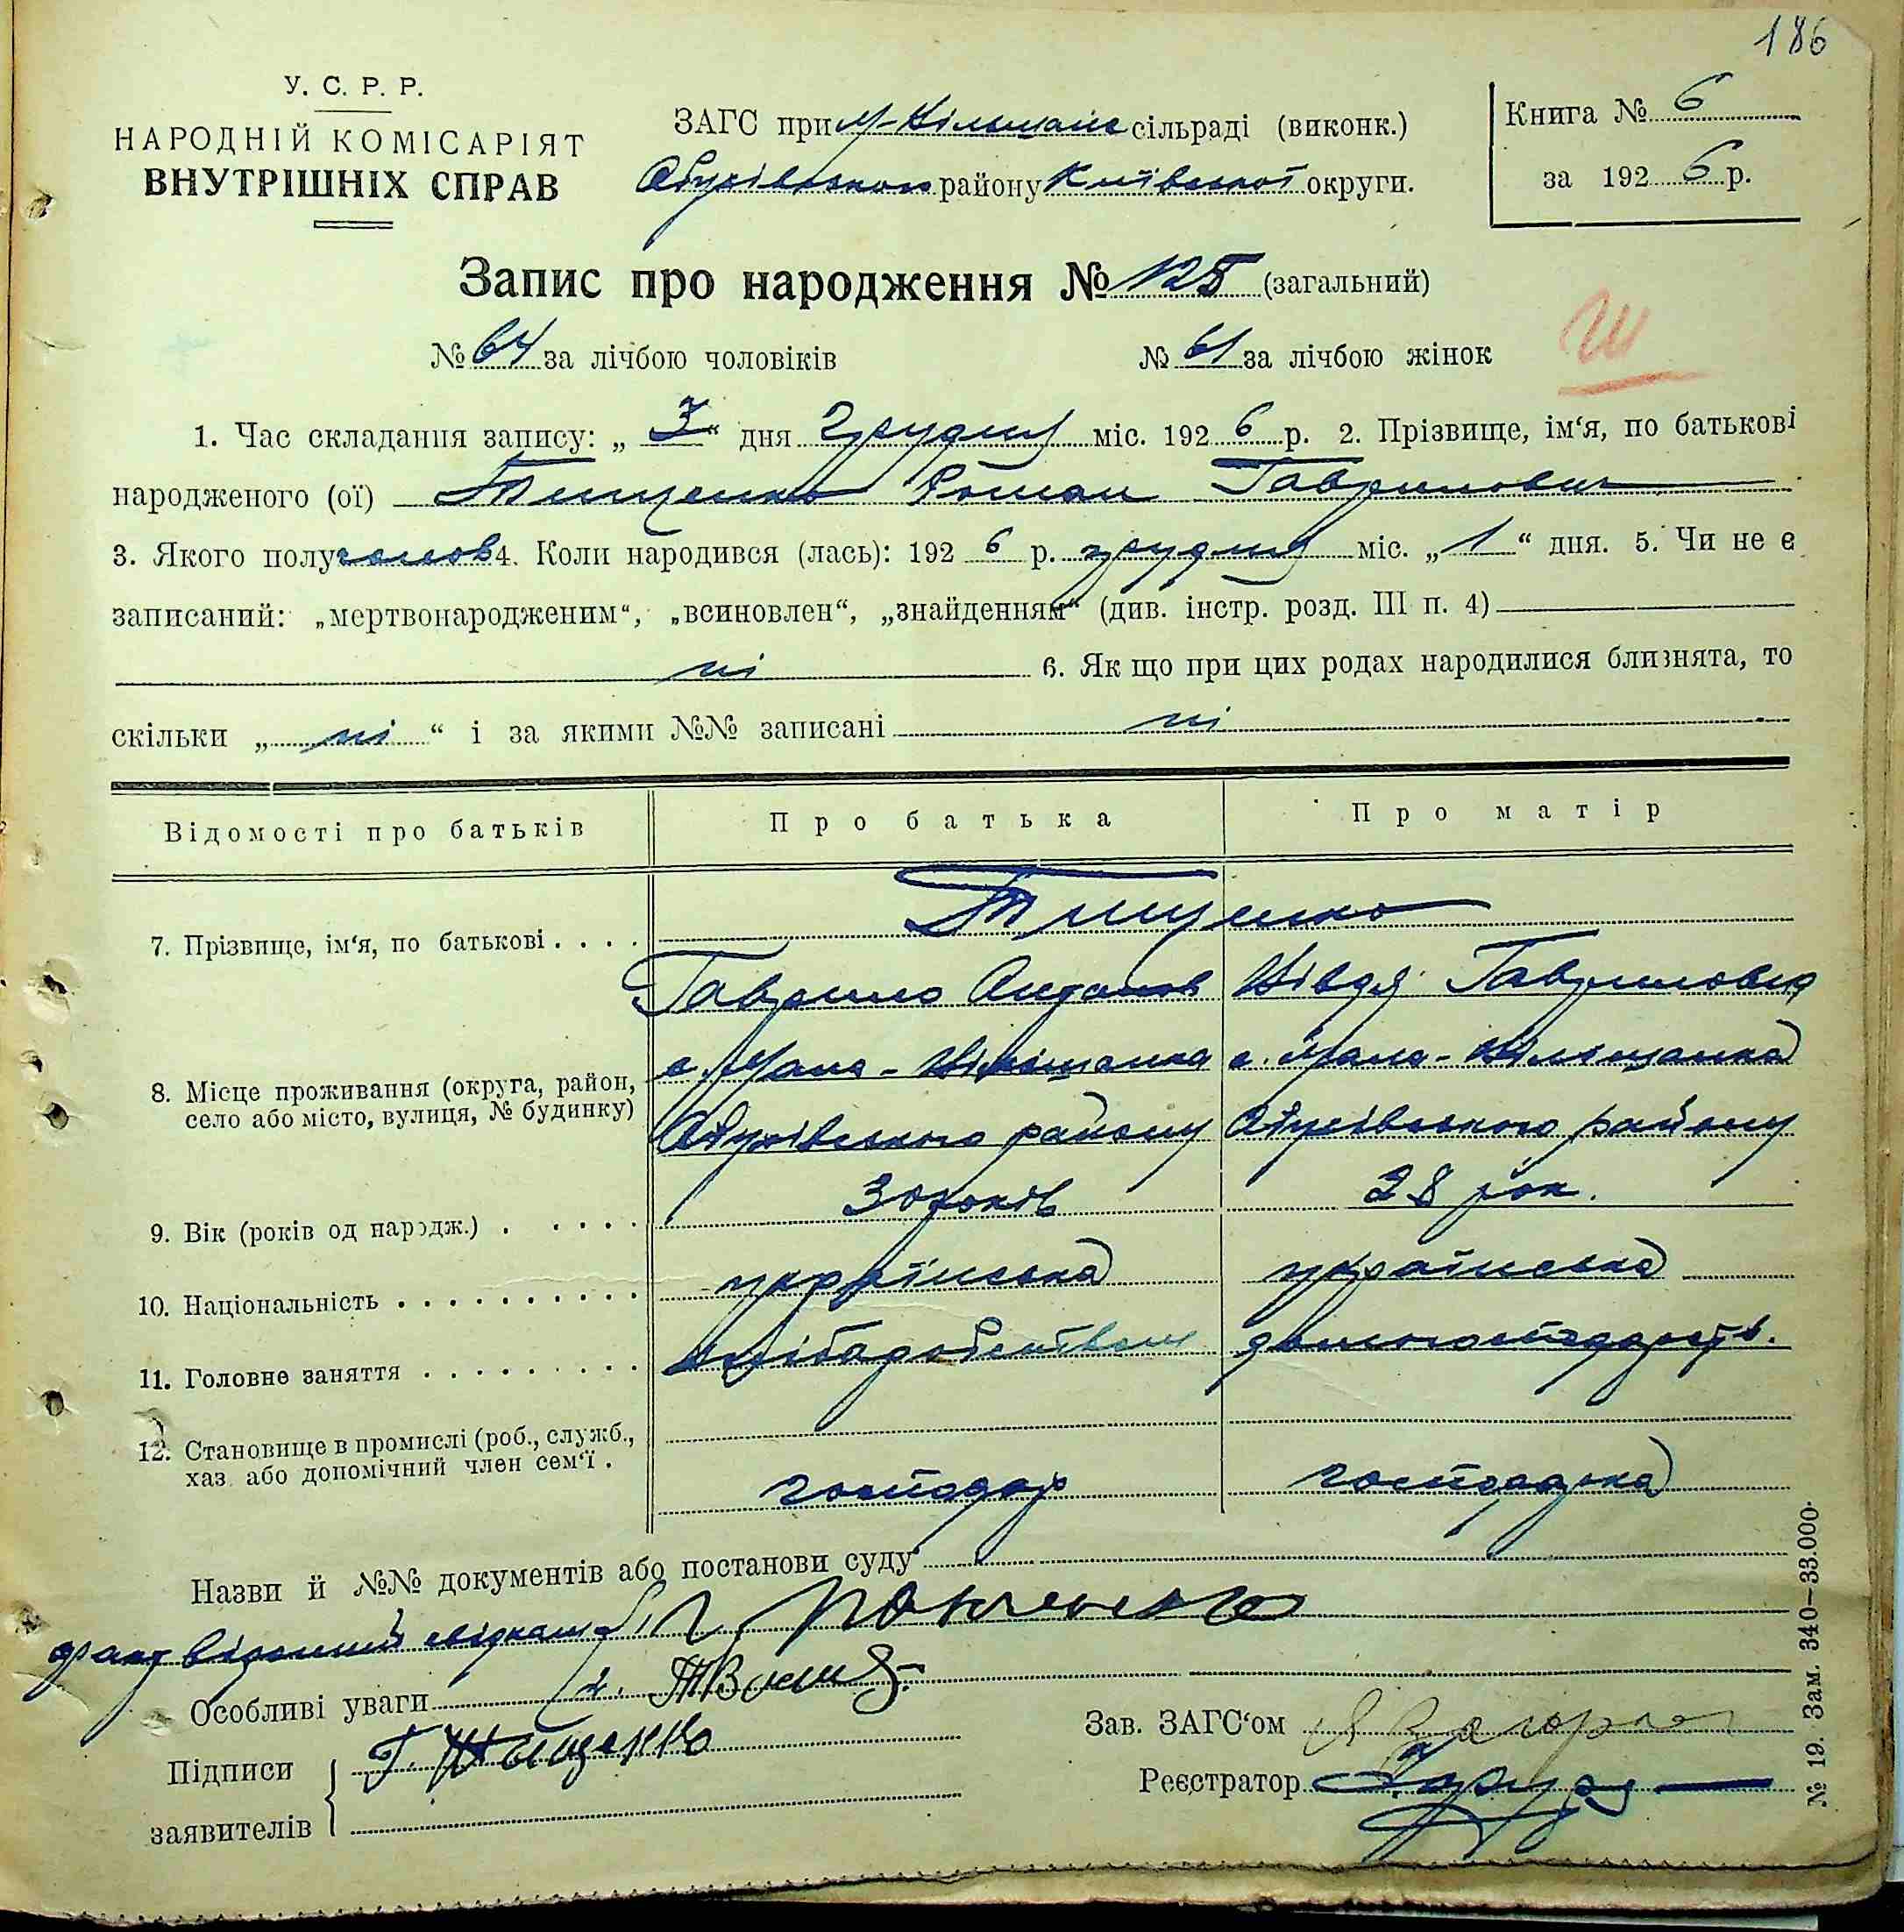 186
У. С. Р. Р.
НАРОДНІЙ КОМІСАРІЯТ
ВНУТРІШНІХ СПРАВ
ЗАГС при М-Вільшанс сільраді (виконк.)
Обухівського району Київської округи.
Книга № 6
за 192 6 р.
Запис про народження № 125 (загальний)
№ 64 за лічбою чоловіків № 61 за лічбою жінок
Ш
1. Час складання запису: „ 3 “ дня Грудня міс. 192 6 р. 2. Прізвище, ім‘я, по батькові
народженого (ої) Тищенко Роман Гаврилович
3. Якого полу чолов 4. Коли народився (лась): 192 6 р. грудня міс. „ 1 “ дня. 5. Чи не є
записаний: „мертвонародженим“, „всиновлен“, „знайденням“ (див. інстр. розд. III п. 4)
ні 6. Як що при цих родах народилися близнята, то
скільки „ ні “ і за якими №№ записані ні
Відомості про батьків Про батька Про матір
Тищенко
7. Прізвище, ім‘я, по батькові . . . .
Гаврило Антонов Вівдя Гавриловна
с. Мала-Вільшанка с. Мала-Вільшанка
8. Місце проживання (округа, район,
село або місто, вулиця, № будинку)
Обухівського району Обухівського району
9. Вік (років од народж.) . . . . . 30 років 28 рок.
10. Національність . . . . . . . . . . українська українська
11. Головне заняття . . . . . . . . . хліборобством домогосподарств.
12. Становище в промислі (роб., служб.,
хаз. або допомічний член сем‘ї .
господар господарка
Назви й №№ документів або постанови суду
факт відомий свідкам 1.
Особливі уваги 2.
Підписи Г. Тыщенко
заявителів
Зав. ЗАГС‘ом
Реєстратор
№ 19. Зам. 340—33.000.